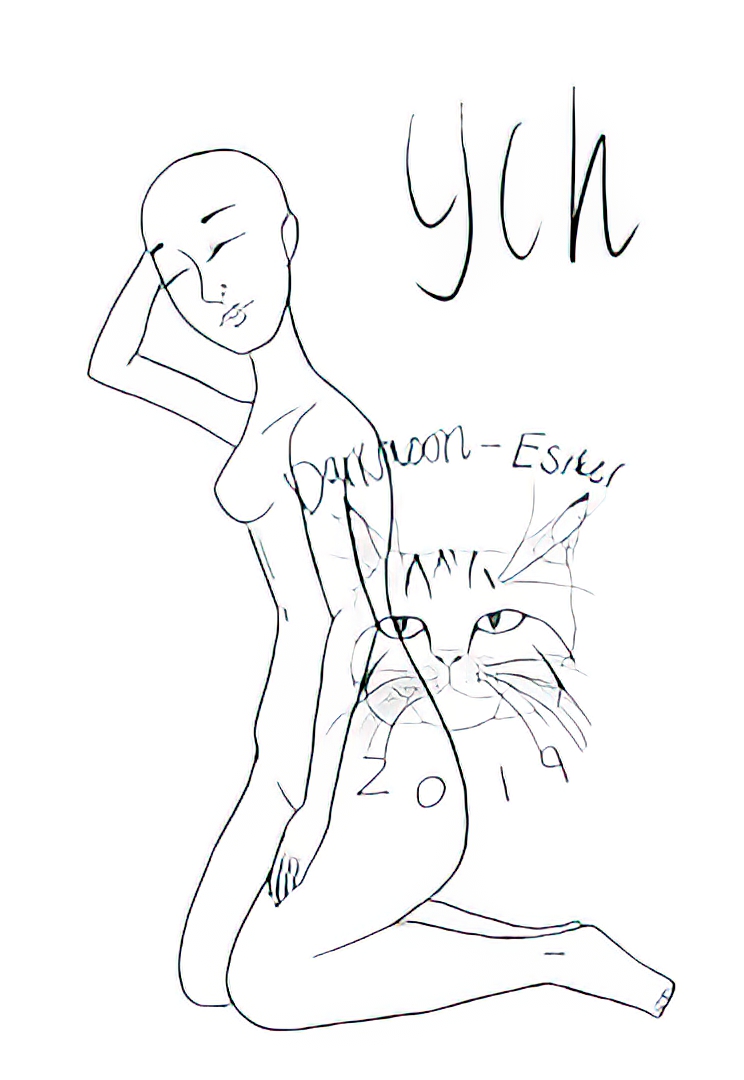 ych
Darkmoon - Esiker
2019